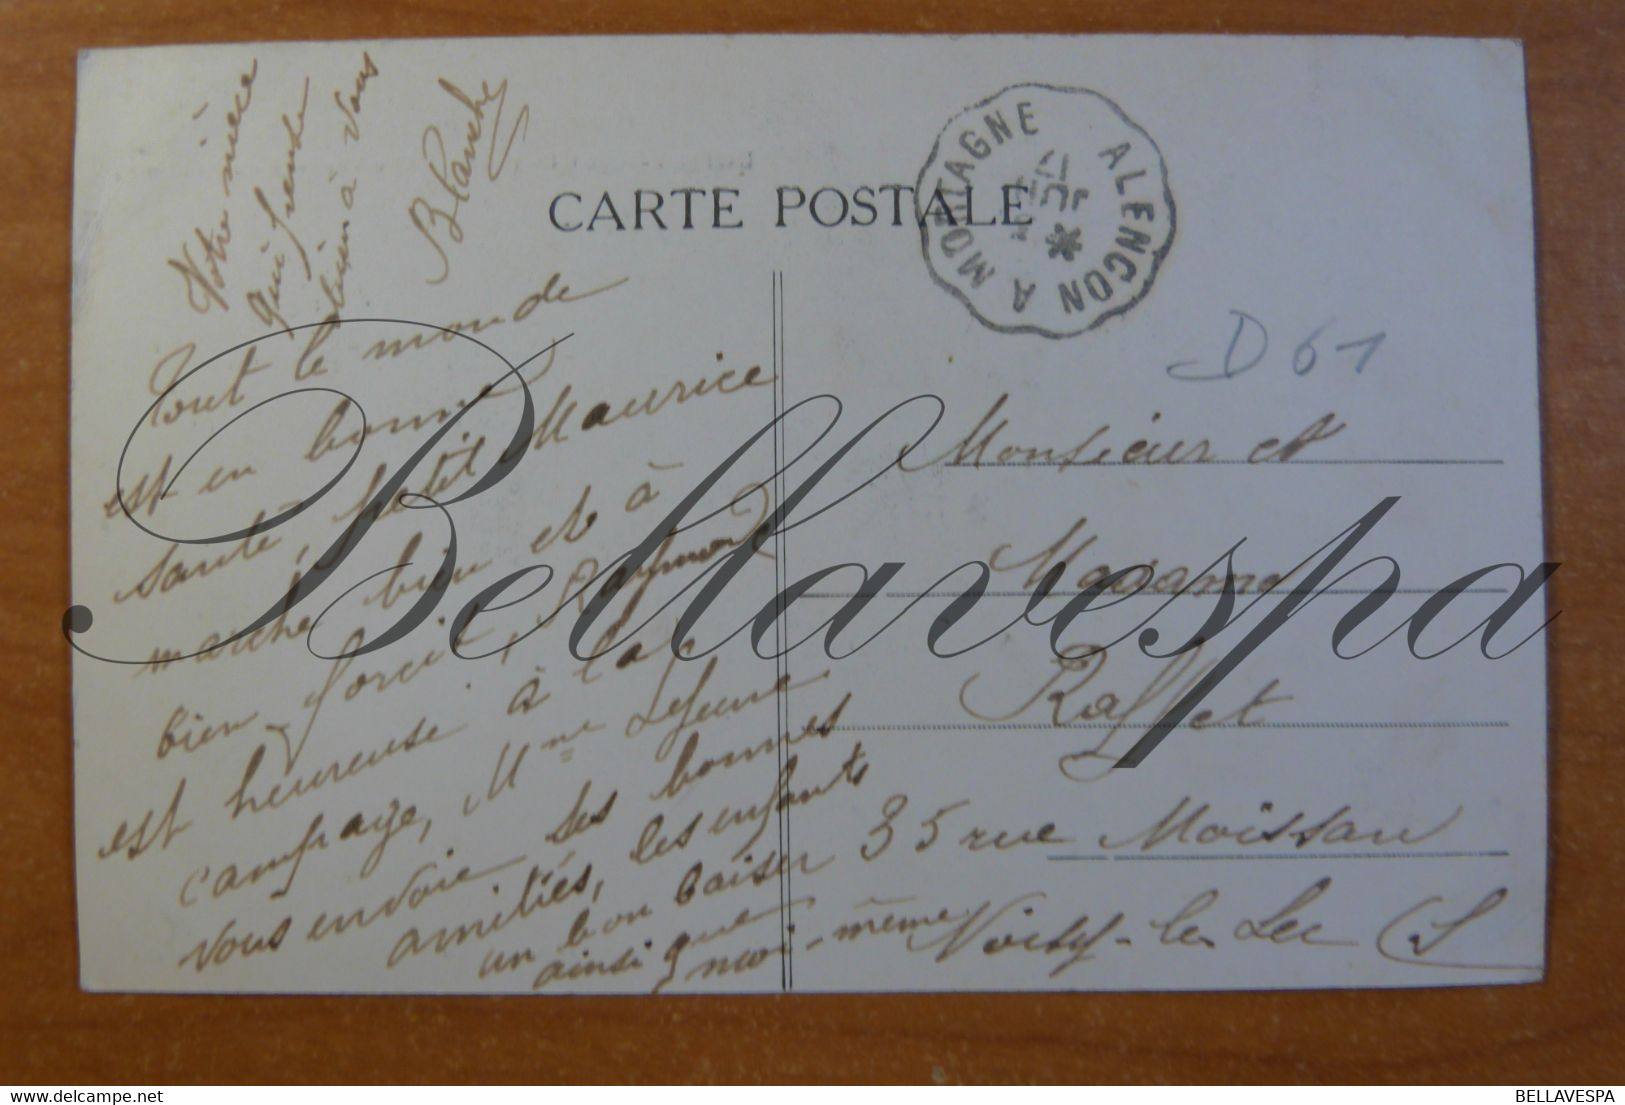 CARTE POSTALE
ALENCON A MORTAGNE
D 61
Tout le monde
est en bonne
santé, petit Maurice
marche bien et à
bien forcit, Raymond
est heureuse à la
campage, Mme Lejeune
vous envoie ses bonnes
amitiés, les enfants
un bon baiser
ainsi que
moi-même
Votre nièce
qui pense
bien à vous
Blanche
Monsieur et
Madame
Raffet
35 rue Moissan
Noisy-le-Sec (S
Bellavespa
BELLAVESPA